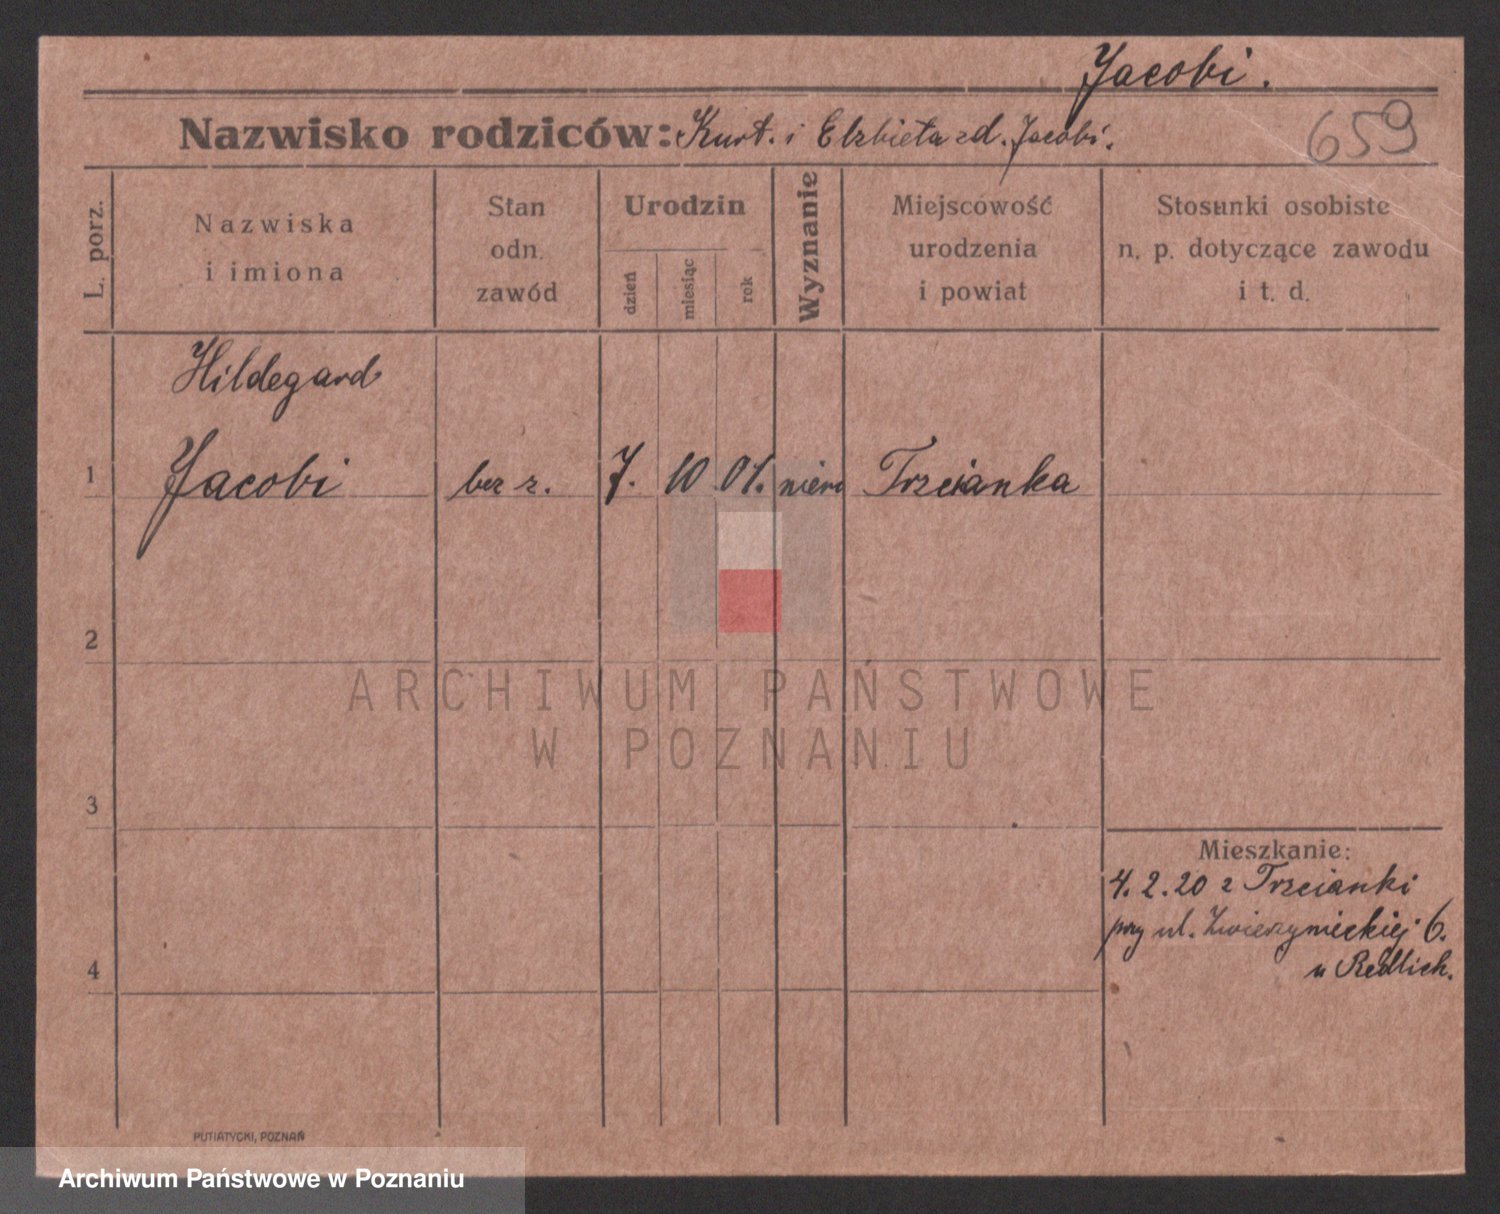 Jacobi.
Nazwisko rodziców: Kurt. i Elzbieta zd. Jacobi.
659
L. porz.
Nazwiska
i imiona
Stan
odn.
zawód
Urodzin
dzień
miesiąc
rok
Wyznanie
Miejscowość
urodzenia
i powiat
Stosunki osobiste
n. p. dotyczące zawodu
i t. d.
Hildegard
1 Jacobi bez z. 7. 10 01. Trzcianka
2
ARCHIWUM PAŃSTWOWE
W POZNANIU
3
Mieszkanie:
4. 2. 20 z Trzcianki
przy ul. Zwierzynieckiej 6.
4
u Redlich.
PUTIATYCKI, POZNAŃ
Archiwum Państwowe w Poznaniu